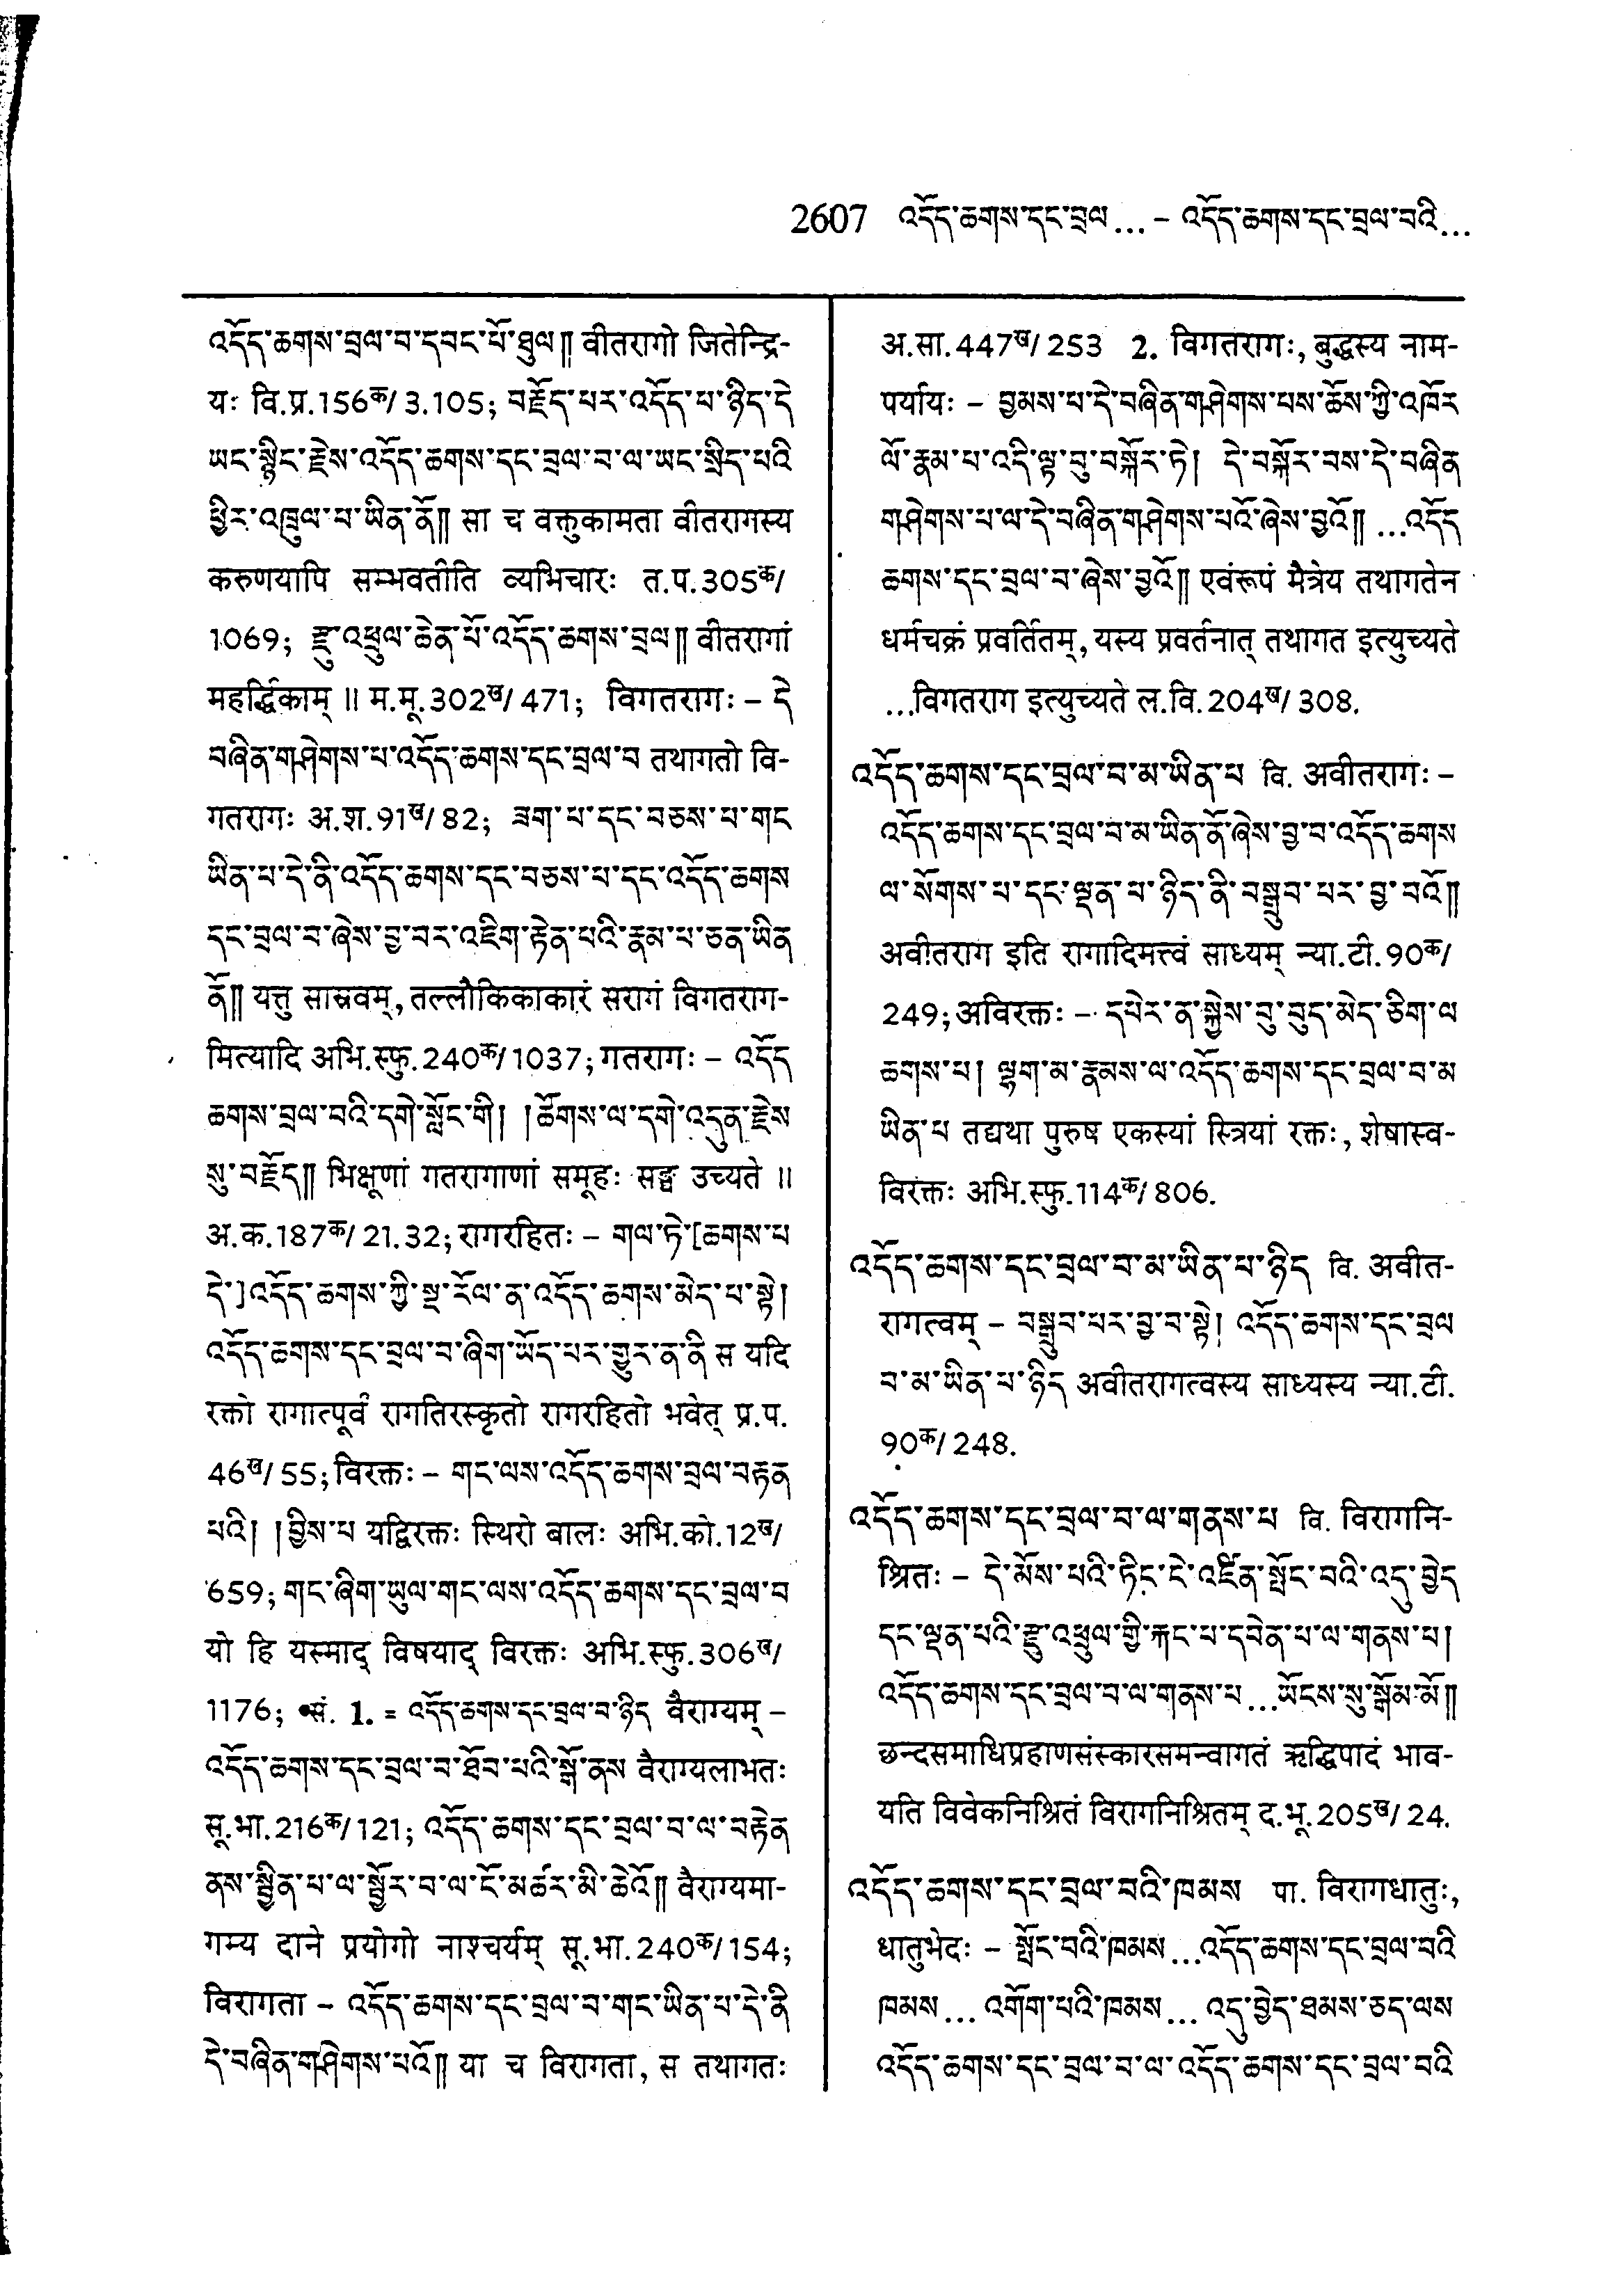 2607 འདོད་ཆགས་དང་བྲལ... – འདོད་ཆགས་དང་བྲལ་བའི...
འདོད་ཆགས་བྲལ་བ་དབང་པོ་ཐུལ༎ वीतरागो जितेन्द्रि-
यः वि.प्र.156क/3.105; བརྗོད་པར་འདོད་པ་ཉིད་དེ
ཡང་སྙིང་རྗེས་འདོད་ཆགས་དང་བྲལ་བ་ལ་ཡང་སྲིད་པའི
ཕྱིར་འཁྲུལ་པ་ཡིན་ནོ༎ सा च वक्तुकामता वीतरागस्य
करुणयापि सम्भवतीति व्यभिचारः त.प.305क/
1069; རྫུ་འཕྲུལ་ཆེན་པོ་འདོད་ཆགས་བྲལ༎ वीतरागां
महर्द्धिकाम् ॥ म.मू.302ख/471; विगतरागः – དེ
བཞིན་གཤེགས་པ་འདོད་ཆགས་དང་བྲལ་བ तथागतो वि-
गतरागः अ.श.91ख/82; ཟག་པ་དང་བཅས་པ་གང
ཡིན་པ་དེ་ནི་འདོད་ཆགས་དང་བཅས་པ་དང་འདོད་ཆགས
དང་བྲལ་བ་ཞེས་བྱ་བར་འཇིག་རྟེན་པའི་རྣམ་པ་ཅན་ཡིན
ནོ༎ यत्तु सास्रवम्, तल्लौकिकाकारं सरागं विगतराग-
मित्यादि अभि.स्फु.240क/1037; गतरागः – འདོད
ཆགས་བྲལ་བའི་དགེ་སློང་གི། །ཚོགས་ལ་དགེ་འདུན་རྗེས
སུ་བརྗོད༎ भिक्षूणां गतरागाणां समूहः सङ्घ उच्यते ॥
अ.क.187क/21.32; रागरहितः – གལ་ཏེ་[ཆགས་པ
དེ་]འདོད་ཆགས་ཀྱི་སྔ་རོལ་ན་འདོད་ཆགས་མེད་པ་སྟེ།
འདོད་ཆགས་དང་བྲལ་བ་ཞིག་ཡོད་པར་གྱུར་ན་ནི स यदि
रक्तो रागात्पूर्वं रागतिरस्कृतो रागरहितो भवेत् प्र.प.
46ख/55; विरक्तः – གང་ལས་འདོད་ཆགས་བྲལ་བརྟན
པའི། །བྱིས་པ यद्विरक्तः स्थिरो बालः अभि.को.12ख/
659; གང་ཞིག་ཡུལ་གང་ལས་འདོད་ཆགས་དང་བྲལ་བ
यो हि यस्माद् विषयाद् विरक्तः अभि.स्फु.306ख/
1176; •सं. 1. = འདོད་ཆགས་དང་བྲལ་བ་ཉིད वैराग्यम् –
འདོད་ཆགས་དང་བྲལ་བ་ཐོབ་པའི་སྒོ་ནས वैराग्यलाभतः
सू.भा.216क/121; འདོད་ཆགས་དང་བྲལ་བ་ལ་བརྟེན
ནས་སྦྱིན་པ་ལ་སྦྱོར་བ་ལ་ངོ་མཚར་མི་ཆེའོ༎ वैराग्यमा-
गम्य दाने प्रयोगो नाश्चर्यम् सू.भा.240क/154;
विरागता – འདོད་ཆགས་དང་བྲལ་བ་གང་ཡིན་པ་དེ་ནི
དེ་བཞིན་གཤེགས་པའོ༎ या च विरागता, स तथागतः
अ.सा.447ख/253 2. विगतरागः, बुद्धस्य नाम-
पर्यायः – བྱམས་པ་དེ་བཞིན་གཤེགས་པས་ཆོས་ཀྱི་འཁོར
ལོ་རྣམ་པ་འདི་ལྟ་བུ་བསྐོར་ཏེ། དེ་བསྐོར་བས་དེ་བཞིན
གཤེགས་པ་ལ་དེ་བཞིན་གཤེགས་པའོ་ཞེས་བྱའོ༎ ...འདོད
ཆགས་དང་བྲལ་བ་ཞེས་བྱའོ༎ एवंरूपं मैत्रेय तथागतेन
धर्मचक्रं प्रवर्तितम्, यस्य प्रवर्तनात् तथागत इत्युच्यते
...विगतराग इत्युच्यते ल.वि.204ख/308.
འདོད་ཆགས་དང་བྲལ་བ་མ་ཡིན་པ वि. अवीतरागः –
འདོད་ཆགས་དང་བྲལ་བ་མ་ཡིན་ནོ་ཞེས་བྱ་བ་འདོད་ཆགས
ལ་སོགས་པ་དང་ལྡན་པ་ཉིད་ནི་བསྒྲུབ་པར་བྱ་བའོ༎
अवीतराग इति रागादिमत्त्वं साध्यम् न्या.टी.90क/
249; अविरक्तः – དཔེར་ན་སྐྱེས་བུ་བུད་མེད་ཅིག་ལ
ཆགས་པ། ལྷག་མ་རྣམས་ལ་འདོད་ཆགས་དང་བྲལ་བ་མ
ཡིན་པ तद्यथा पुरुष एकस्यां स्त्रियां रक्तः, शेषास्व-
विरक्तः अभि.स्फु.114क/806.
འདོད་ཆགས་དང་བྲལ་བ་མ་ཡིན་པ་ཉིད वि. अवीत-
रागत्वम् – བསྒྲུབ་པར་བྱ་བ་སྟེ། འདོད་ཆགས་དང་བྲལ
བ་མ་ཡིན་པ་ཉིད अवीतरागत्वस्य साध्यस्य न्या.टी.
90क/248.
འདོད་ཆགས་དང་བྲལ་བ་ལ་གནས་པ वि. विरागनि-
श्रितः – དེ་མོས་པའི་ཏིང་ངེ་འཛིན་སྤོང་བའི་འདུ་བྱེད
དང་ལྡན་པའི་རྫུ་འཕྲུལ་གྱི་རྐང་པ་དབེན་པ་ལ་གནས་པ།
འདོད་ཆགས་དང་བྲལ་བ་ལ་གནས་པ...ཡོངས་སུ་སྒོམ་མོ༎
छन्दसमाधिप्रहाणसंस्कारसमन्वागतं ऋद्धिपादं भाव-
यति विवेकनिश्रितं विरागनिश्रितम् द.भू.205ख/24.
འདོད་ཆགས་དང་བྲལ་བའི་ཁམས पा. विरागधातुः,
धातुभेदः – སྤོང་བའི་ཁམས...འདོད་ཆགས་དང་བྲལ་བའི
ཁམས... འགོག་པའི་ཁམས... འདུ་བྱེད་ཐམས་ཅད་ལས
འདོད་ཆགས་དང་བྲལ་བ་ལ་འདོད་ཆགས་དང་བྲལ་བའི